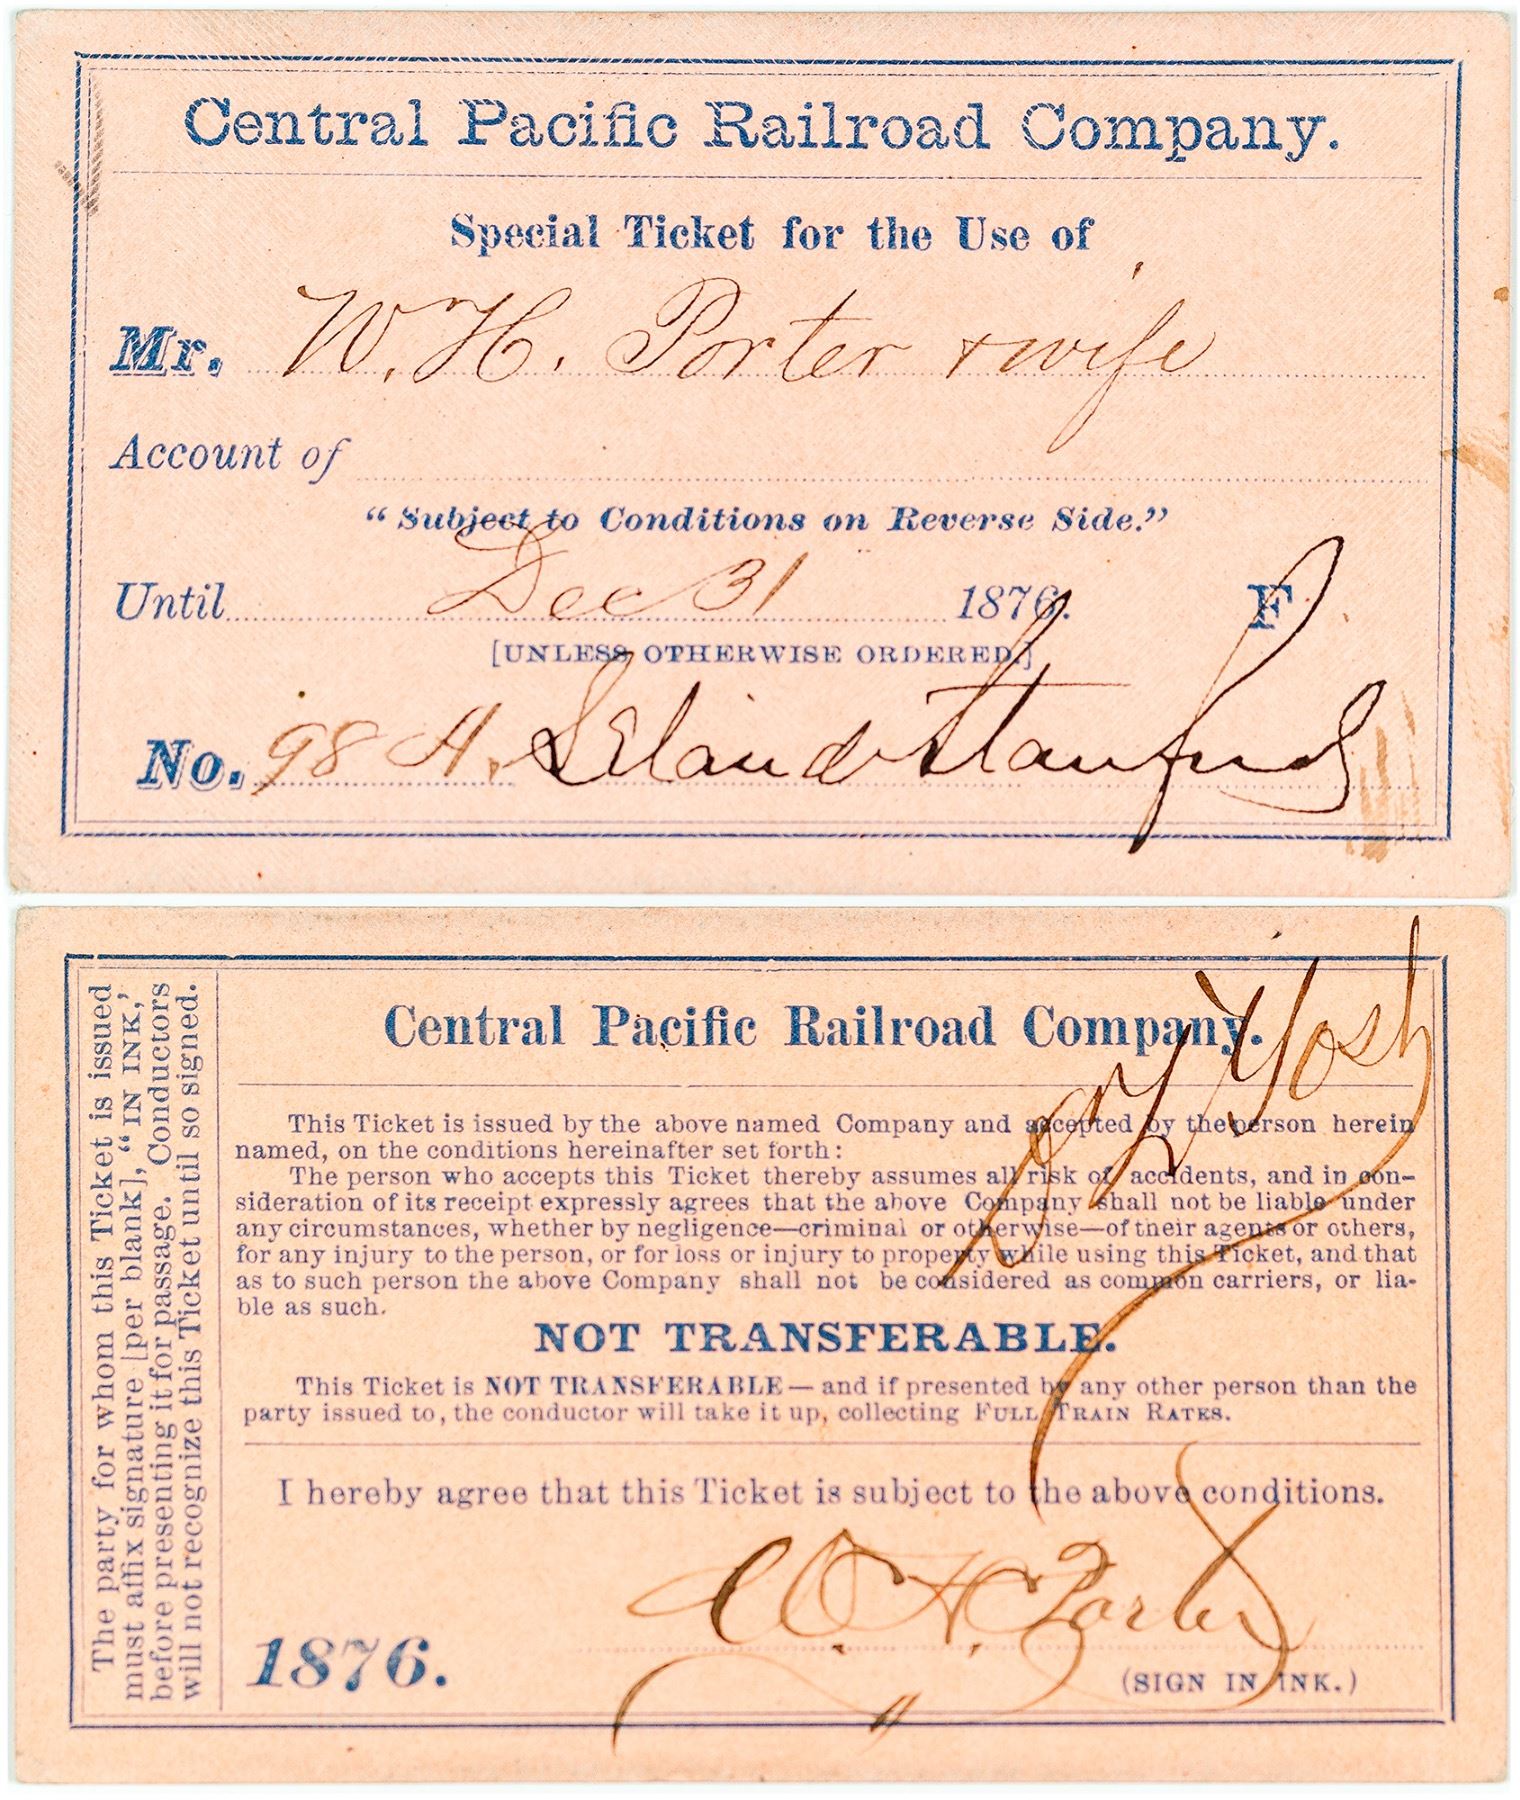 Central Pacific Railroad Company.
Special Ticket for the Use of
Mr. W. H. Porter & wife
Account of
"Subject to Conditions on Reverse Side."
Until Dec 31 1876. F
[UNLESS OTHERWISE ORDERED.]
No. 98 A. Leland Stanford
Central Pacific Railroad Company.
This Ticket is issued by the above named Company and accepted by the person herein
named, on the conditions hereinafter set forth:
The person who accepts this Ticket thereby assumes all risk of accidents, and in con-
sideration of its receipt expressly agrees that the above Company shall not be liable under
any circumstances, whether by negligence—criminal or otherwise—of their agents or others,
for any injury to the person, or for loss or injury to property while using this Ticket, and that
as to such person the above Company shall not be considered as common carriers, or lia-
ble as such.
NOT TRANSFERABLE.
This Ticket is NOT TRANSFERABLE—and if presented by any other person than the
party issued to, the conductor will take it up, collecting FULL TRAIN RATES.
I hereby agree that this Ticket is subject to the above conditions.
W. H. Porter
1876.
(SIGN IN INK.)
The party for whom this Ticket is issued
must affix signature [per blank], "IN INK,'
before presenting it for passage. Conductors
will not recognize this Ticket until so signed.